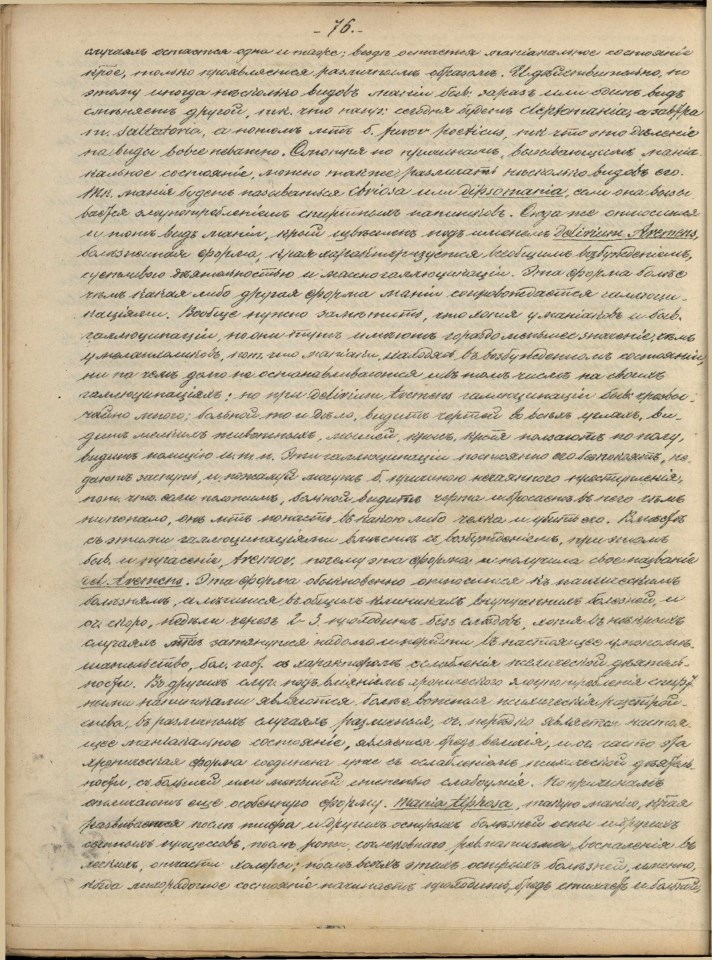 - 76. -
случаяхъ остается одна и таже; вездѣ остается маніакальное состояніе
крое, только проявляется различнымъ образомъ. И дѣйствительно, по
этому иногда нѣсколько видовъ маніи быв. заразъ или одинъ видъ
смѣняетъ другой, т.к. что напр: сегодня будетъ cleptomania, а завтра
m. saltatoria, а потомъ мтъ б. furor poeticus, такъ что это дѣленіе
на виды вовсе неважно. Смотря по причинамъ, вызывающимъ маніа-
кальное состояніе, можно также различать нѣсколько видовъ его.
Так. манія будетъ называться ebriosa или dipsomania, если она вызы
вается злоупотребленіемъ спиртныхъ напитковъ. Сюда же относится
и тотъ видъ маніи, крый извѣстенъ подъ именемъ delirium tremens,
болѣзненная форма, края характеризуется всеобщимъ возбужденіемъ,
суетливою дѣятельностью и массою галлюцинацій. Эта форма болѣе
чѣмъ какая либо другая форма маніи сопровождается галлюци-
націями. Вообще нужно замѣтить, что хотя у маніаковъ и быв.
галлюцинаціи, но они тутъ имѣютъ гораздо меньшее значеніе, чѣмъ
у меланхоликовъ, пот. что маніаки, находясь въ возбужденномъ состояніи,
ни на чемъ долго не останавливаются и въ томъ числѣ на своихъ
галлюцинаціяхъ; но при delirium tremens галлюцинаціи быв. чрезвы-
чайно много; больной то и дѣло, видитъ чертей во всѣхъ углахъ, ви-
дитъ мелкихъ животныхъ, мышей, крысъ, ползаютъ по полу,
видитъ полицію и т. п. Эти галлюцинаціи постоянно его безпокоятъ, не
даютъ заснуть и, пожалуй могутъ б. причиною нечаяннаго преступленія,
пот. что если положимъ, больной видитъ черта и бросаетъ въ него чѣмъ
ни попало, онъ мтъ попасть въ какого либо челка и убить его. Вмѣстѣ
съ этими галлюцинаціями вмѣстѣ съ возбужденіемъ, при этомъ
быв. и дрожаніе, tremor, почему эта форма и получила свое названіе
del. tremens. Эта форма обыкновенно относится къ психическимъ
болѣзнямъ, а лечится въ общихъ клиникахъ внутреннихъ болѣзней, и
оч. скоро, недѣли черезъ 2-3, проходитъ безъ слѣдовъ, хотя въ нѣкрыхъ
случаяхъ мтъ затянуться надолго и перейти въ настоящее умопомѣ-
шательство, съ характеромъ ослабленія психической дѣятель-
ности. Въ другихъ случ. подъ вліяніемъ хроническаго злоупотребленія спирт-
ными напитками являются болѣе важныя психическія разстрой-
ства, въ различныхъ случаяхъ, различныя, оч. нерѣдко является настоя-
щее маніакальное состояніе, является бредъ величія, и оч. часто эта
хроническая форма соединена уже съ ослабленіемъ психической дѣятель-
ности, съ большей или меньшей степенью слабоумія. По причинамъ
отличаютъ еще особенную форму. Mania typhosa, такую манію, края
развивается послѣ тифа и другихъ острыхъ болѣзней оспы и другихъ
сыпныхъ процессовъ, послѣ рожи, сочленовнаго ревматизма, воспаленія въ
легкихъ, отчасти холеры; послѣ всѣхъ этихъ острыхъ болѣзней, именно,
когда лихорадочное состояніе начинаетъ проходить, бредъ стихаетъ и больной,